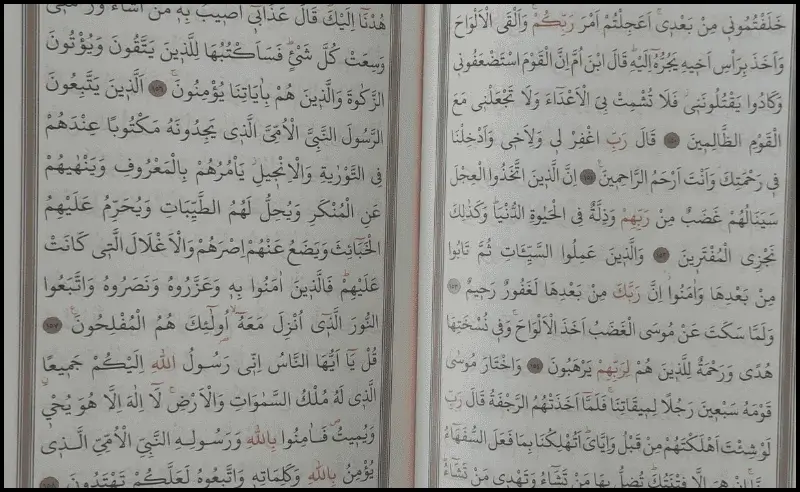 خَلَفْتُمُونِي مِنْ بَعْدِي أَعَجِلْتُمْ أَمْرَ رَبِّكُمْ وَاَلْقَى الْاَلْوَاحَ
وَاَخَذَ بِرَأْسِ اَخِيهِ يَجُرُّهُٓ اِلَيْهِ قَالَ ابْنَ اُمَّ اِنَّ الْقَوْمَ اسْتَضْعَفُونِي
وَكَادُوا يَقْتُلُونَنِي فَلَا تُشْمِتْ بِيَ الْاَعْدَٓاءَ وَلَا تَجْعَلْنِي مَعَ
الْقَوْمِ الظَّالِمِينَ ١٥٠ قَالَ رَبِّ اغْفِرْ لِي وَلِاَخِي وَاَدْخِلْنَا
فِي رَحْمَتِكَ وَاَنْتَ اَرْحَمُ الرَّاحِمِينَ ١٥١ اِنَّ الَّذِينَ اتَّخَذُوا الْعِجْلَ
سَيَنَالُهُمْ غَضَبٌ مِنْ رَبِّهِمْ وَذِلَّةٌ فِي الْحَيٰوةِ الدُّنْيَا وَكَذٰلِكَ
نَجْزِي الْمُفْتَرِينَ ١٥٢ وَالَّذِينَ عَمِلُوا السَّيِّـَٔاتِ ثُمَّ تَابُوا
مِنْ بَعْدِهَا وَاٰمَنُٓوا اِنَّ رَبَّكَ مِنْ بَعْدِهَا لَغَفُورٌ رَحِيمٌ ١٥٣
وَلَمَّا سَكَتَ عَنْ مُوسَى الْغَضَبُ اَخَذَ الْاَلْوَاحَ وَفِي نُسْخَتِهَا
هُدًى وَرَحْمَةٌ لِلَّذِينَ هُمْ لِرَبِّهِمْ يَرْهَبُونَ ١٥٤ وَاخْتَارَ مُوسٰى
قَوْمَهُ سَبْعِينَ رَجُلًا لِمِيقَاتِنَا فَلَمَّٓا اَخَذَتْهُمُ الرَّجْفَةُ قَالَ رَبِّ
لَوْ شِئْتَ اَهْلَكْتَهُمْ مِنْ قَبْلُ وَاِيَّايَ اَتُهْلِكُنَا بِمَا فَعَلَ السُّفَهَٓاءُ
مِنَّا اِنْ هِيَ اِلَّا فِتْنَتُكَ تُضِلُّ بِهَا مَنْ تَشَٓاءُ وَتَهْدِي مَنْ تَشَٓاءُ
هُدْنَٓا اِلَيْكَ قَالَ عَذَابِٓي اُصِيبُ بِهِ مَنْ اَشَٓاءُ وَرَحْمَتِي
وَسِعَتْ كُلَّ شَيْءٍ فَسَاَكْتُبُهَا لِلَّذِينَ يَتَّقُونَ وَيُؤْتُونَ
الزَّكٰوةَ وَالَّذِينَ هُمْ بِاٰيَاتِنَا يُؤْمِنُونَ ١٥٦ اَلَّذِينَ يَتَّبِعُونَ
الرَّسُولَ النَّبِيَّ الْاُمِّيَّ الَّذِي يَجِدُونَهُ مَكْتُوبًا عِنْدَهُمْ
فِي التَّوْرٰيةِ وَالْاِنْجِيلِ يَأْمُرُهُمْ بِالْمَعْرُوفِ وَيَنْهٰيهُمْ
عَنِ الْمُنْكَرِ وَيُحِلُّ لَهُمُ الطَّيِّبَاتِ وَيُحَرِّمُ عَلَيْهِمُ
الْخَبَٓائِثَ وَيَضَعُ عَنْهُمْ اِصْرَهُمْ وَالْاَغْلَالَ الَّتِي كَانَتْ
عَلَيْهِمْ فَالَّذِينَ اٰمَنُوا بِهِ وَعَزَّرُوهُ وَنَصَرُوهُ وَاتَّبَعُوا
النُّورَ الَّذِٓي اُنْزِلَ مَعَهُٓ اُولٰٓئِكَ هُمُ الْمُفْلِحُونَ ١٥٧
قُلْ يَٓا اَيُّهَا النَّاسُ اِنِّي رَسُولُ اللّٰهِ اِلَيْكُمْ جَمِيعًا
الَّذِي لَهُ مُلْكُ السَّمٰوَاتِ وَالْاَرْضِ لَٓا اِلٰهَ اِلَّا هُوَ يُحْيِ
وَيُمِيتُ فَاٰمِنُوا بِاللّٰهِ وَرَسُولِهِ النَّبِيِّ الْاُمِّيِّ الَّذِي
يُؤْمِنُ بِاللّٰهِ وَكَلِمَاتِهِ وَاتَّبِعُوهُ لَعَلَّكُمْ تَهْتَدُونَ ١٥٨